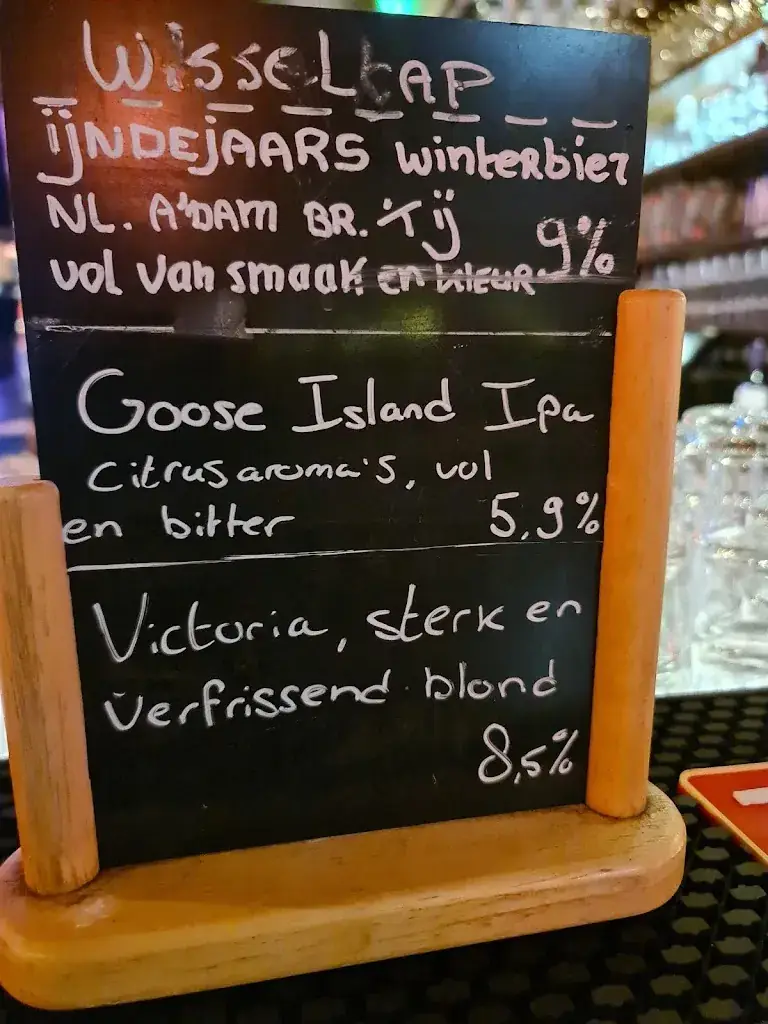 Wisseltap
ijNDEjAARS winterbier
NL. A'DAM BR. 'T ij
9%
vol van smaak en kleur
Goose Island Ipa
citrusaroma's, vol
en bitter 5,9%
Victoria, sterk en
verfrissend blond
8,5%